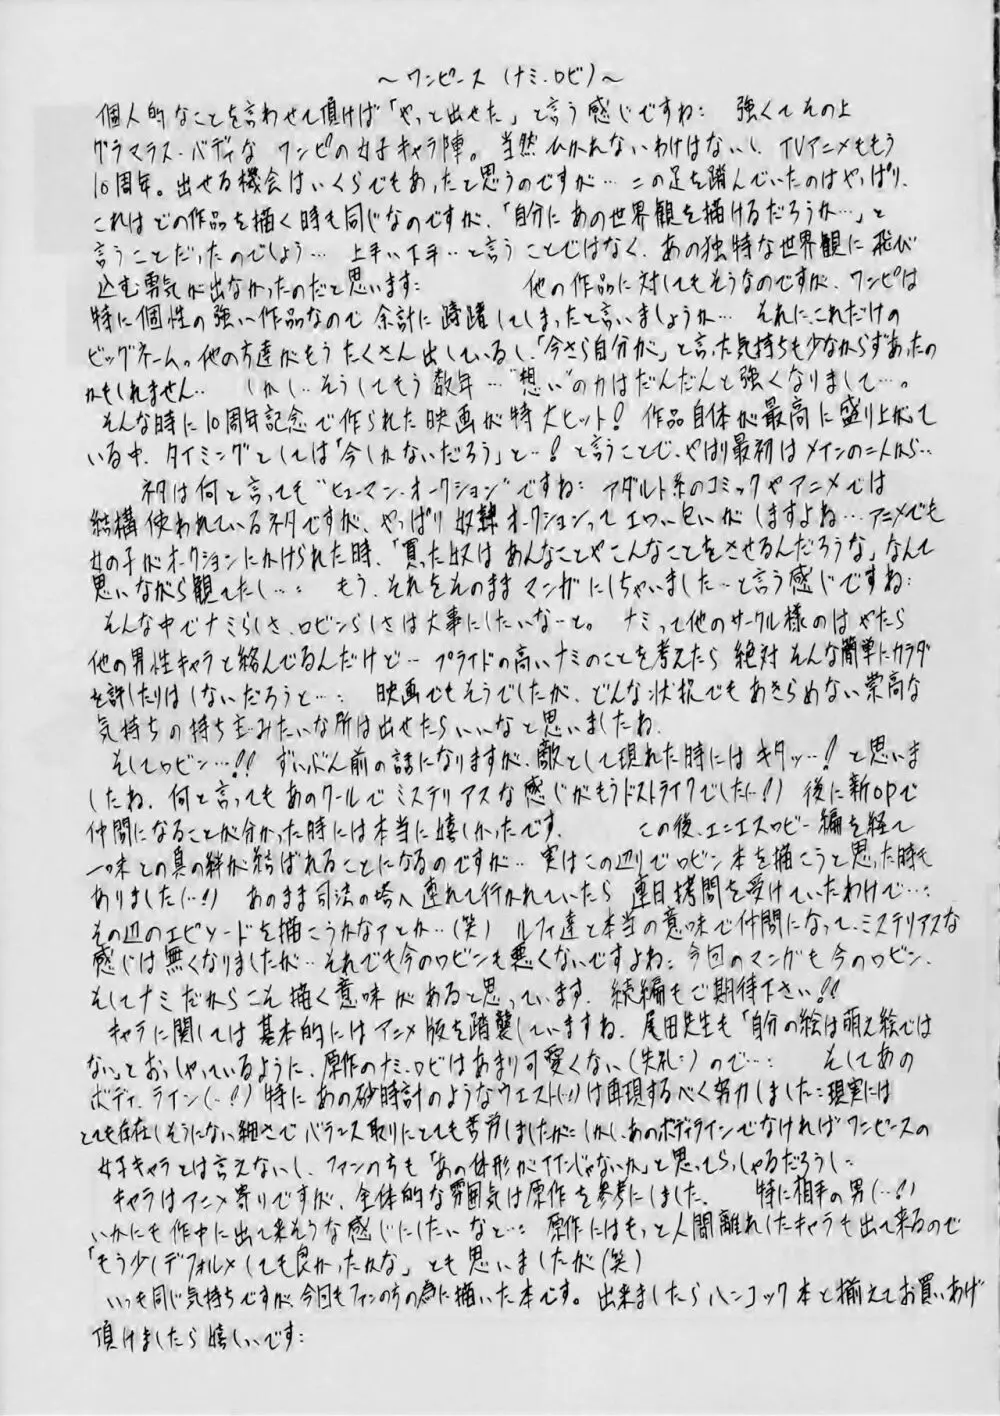 ～ワンピース（ナミ・ロビ）～
個人的なことを言わせて頂けば「やっと出せた」と言う感じですね： 強くてその上
グラマラス・バディな ワンピの女子キャラ陣。当然ひかれないわけはないし、TVアニメももう
10周年。出せる機会はいくらでもあったと思うのですが… 二の足を踏んでいたのはやっぱり、
これはどの作品を描く時も同じなのですが、「自分にあの世界観を描けるだろうか…」と
言うことだったのでしょう… 上手い下手‥と言うことではなく、あの独特な世界観に飛び
込む勇気が出なかったのだと思います： 他の作品に対してもそうなのですが、ワンピは
特に個性の強い作品なので 余計に躊躇してしまったと言いましょうか… それに、これだけの
ビッグネーム。他の方達がもうたくさん出しているし、「今さら自分が」と言った気持ちも少なからずあったの
かもしれません‥ しかし‥そうしてもう数年…"想い"の力はだんだんと強くなりまして…。
そんな時に10周年記念で作られた映画が特大ヒット！ 作品自体が最高に盛り上がって
いる中、タイミングとしては「今しかないだろう」と…！と言うことで、やはり最初はメインの二人から‥
ネタは何と言っても"ヒューマン・オークション"ですね： アダルト系のコミックやアニメでは
結構使われているネタですが、やっぱり奴隷オークションってエロい匂いがしますよね…アニメでも
女の子がオークションにかけられた時、「買った奴は あんなことやこんなことをさせるんだろうな」なんて
思いながら観てたし…： もう、それをそのままマンガにしちゃいました…と言う感じですね：
そんな中でナミらしさ、ロビンらしさは大事にしたいなーと。 ナミって他のサークル様のはやたら
他の男性キャラと絡んでるんだけど… プライドの高いナミのことを考えたら絶対そんな簡単にカラダ
を許したりはしないだろうと…： 映画でもそうでしたが、どんな状況でもあきらめない崇高な
気持ちの持ち主みたいな所は出せたらいいなと思いましたね、
そしてロビン…！！ ずいぶん前の話になりますが、敵として現れた時にはキタッ…！と思いま
したね、何と言ってもあのクールでミステリアスな感じがもうドストライクでした(…！) 後に新OPで
仲間になることが分かった時には本当に嬉しかったです、 この後、エニエスロビー編を経て
一味との真の絆が結ばれることになるのですが… 実はこの辺りでロビン本を描こうと思った時も
ありました(…！) あのまま司法の塔へ連れて行かれていたら 連日拷問を受けていたわけで…：
その辺のエピソードを描こうかなァとか…(笑) ルフィ達と本当の意味で仲間になって、ミステリアスな
感じは無くなりましたが…それでも今のロビンも悪くないですよね： 今回のマンガも今のロビン、
そしてナミだからこそ描く意味があると思っています、続編もご期待下さい！！
キャラに関しては基本的にはアニメ版を踏襲していますね、尾田先生も「自分の絵は萌え絵では
ない」とおっしゃっているように、原作のナミ、ロビはあまり可愛くない(失礼：)ので…： そしてあの
ボディ・ライン(…！)特にあの砂時計のようなウエスト(…！)は再現するべく努力しました：現実には
とても存在しそうにない細さでバランス取りにとても苦労しましたが：しかし、あのボディラインでなければワンピースの
女子キャラとは言えないし、ファンの方も「あの体形がイインじゃないか」と思ってらっしゃるだろうし：
キャラはアニメ寄りですが、全体的な雰囲気は原作を参考にしました、 特に相手の男(…！)
いかにも作中に出て来そうな感じにしたいなと…： 原作にはもっと人間離れしたキャラも出て来るので
「もう少しデフォルメしても良かったかな」とも思いましたが(笑)
いつも同じ気持ちですが、今回もファンの方の為に描いた本です。出来ましたらハンコック本と揃えてお買いあげ
頂けましたら嬉しいです：